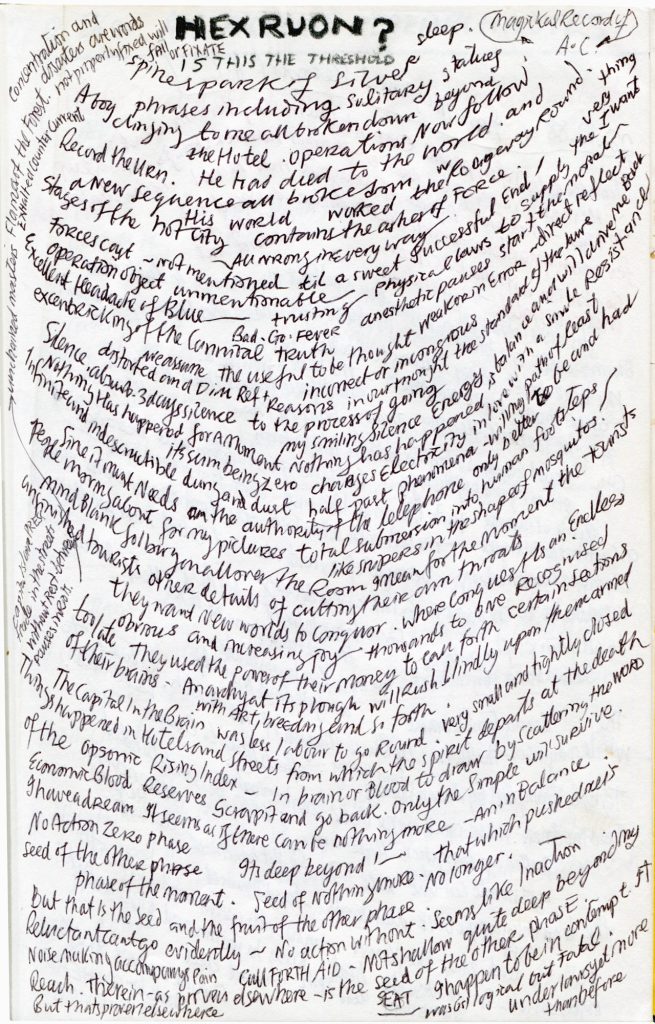 HEXRUON?
IS THIS THE THRESHOLD
sleep. (Magickal Record of
A.C
Concentration and
disasters are words
not proportioned will
fail or FIXATE
Flames of the Forest
Exhalted counter current
spine spark of silver
A boy phrases including solitary statues
clinging to me all broken down beyond
the Hotel. operations Now follow
Record the Urn. He had died to the world. and
a New sequence all broke from wrong way Round.
Stages of the hot city His world worked the
contains the ashes of FORCE.
very thing
I want
Forces cast ~ All wrong in every way
not mentioned til a sweet successful End!
operation object unmentionable
trusting physical laws to supply the
Excellent Headache of Blue
anesthetic pauses start the moral
excentric King of the Committal Truth
Bad. Go. Fever
measure the useful to be thought weak or in Error - direct reflect
distorted and Dim Ref + incorrect or incongrous
Reasons in our thought the standard of the
Silence absurb. 3 days silence to the process of going
my smiling silence Energy is balance and will drive me Back
Nothing Has happened for A moment Nothing has happened
its sum being Zero charges Electricity in love with a single Resistance
Infinite and indescructible dung and dust half past phenomena - willing path of least
Sine it must Needs on the authority of the telephone only better to be and had
People moving about for my pictures total submersion into human footsteps
Mind Blank fol burg on all over the Room like snipers in the shape of mosquitos.
unfinished tourists other details of cutting their own throats
I mean for the moment the tourists
they want New worlds to Conquor. Where Conquest Is an Endless
obvious and increasing joy thousands to one Recognised
too late They used the power of their Money to call forth certain sections
of their brains - Anarchy at its plough will Rush blindly upon them armed
with Art, breeding and so forth.
The Capital in the Brain was less labour to go Round. Very small and tightly closed
Things happened in Hotels and streets from which the spirit departs at the death
of the opsonic Rising Index - In brain or Blood to draw by Scattering the WORD
Economic Blood Reserves Scrap it and go back. Only the Simple will survive.
I have a dream It seems as if there can be nothing more - An in Balance
No Action Zero phase Its deep beyond! - that which pushed axis
seed of the other phase Seed of Nothing more - No longer.
phase of the moment.
But that is the seed and the fruit of the other phase. Seems like Inaction
Reluctant cant go evidently ~ No action without.
Noise making accompanys pain CALL FORTH AID - Not shallow quite deep beyond my
Reach. Therein - as proven elsewhere - is the seed of the other phasE.
SEAT
I happen to be in contempt. It
was Logical but Fatal.
But thats proven elsewhere
under laws yet more
than before